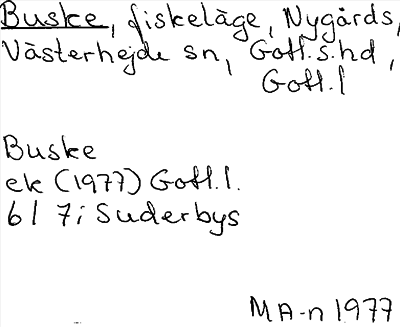 Buske, fiskeläge, Nygårds,
Västerhejde sn, Gotl.s.hd,
Gotl.l
Buske
ek (1977) Gotl.l.
6I 7i Suderbys
MA-n 1977